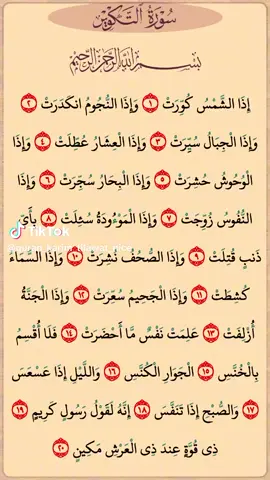 سُورَةُ التَّكْوِيرِ
بِسْمِ اللَّهِ الرَّحْمَٰنِ الرَّحِيمِ
إِذَا الشَّمْسُ كُوِّرَتْ ١ وَإِذَا النُّجُومُ انكَدَرَتْ ٢
وَإِذَا الْجِبَالُ سُيِّرَتْ ٣ وَإِذَا الْعِشَارُ عُطِّلَتْ ٤ وَإِذَا
الْوُحُوشُ حُشِرَتْ ٥ وَإِذَا الْبِحَارُ سُجِّرَتْ ٦ وَإِذَا
النُّفُوسُ زُوِّجَتْ ٧ وَإِذَا الْمَوْءُودَةُ سُئِلَتْ ٨ بِأَيِّ
TikTok
ذَنبٍ قُتِلَتْ ٩ وَإِذَا الصُّحُفُ نُشِرَتْ ١٠ وَإِذَا السَّمَاءُ
كُشِطَتْ ١١ وَإِذَا الْجَحِيمُ سُعِّرَتْ ١٢ وَإِذَا الْجَنَّةُ
أُزْلِفَتْ ١٣ عَلِمَتْ نَفْسٌ مَّا أَحْضَرَتْ ١٤ فَلَا أُقْسِمُ
بِالْخُنَّسِ ١٥ الْجَوَارِ الْكُنَّسِ ١٦ وَاللَّيْلِ إِذَا عَسْعَسَ
١٧ وَالصُّبْحِ إِذَا تَنَفَّسَ ١٨ إِنَّهُ لَقَوْلُ رَسُولٍ كَرِيمٍ ١٩
ذِى قُوَّةٍ عِندَ ذِى الْعَرْشِ مَكِينٍ ٢٠